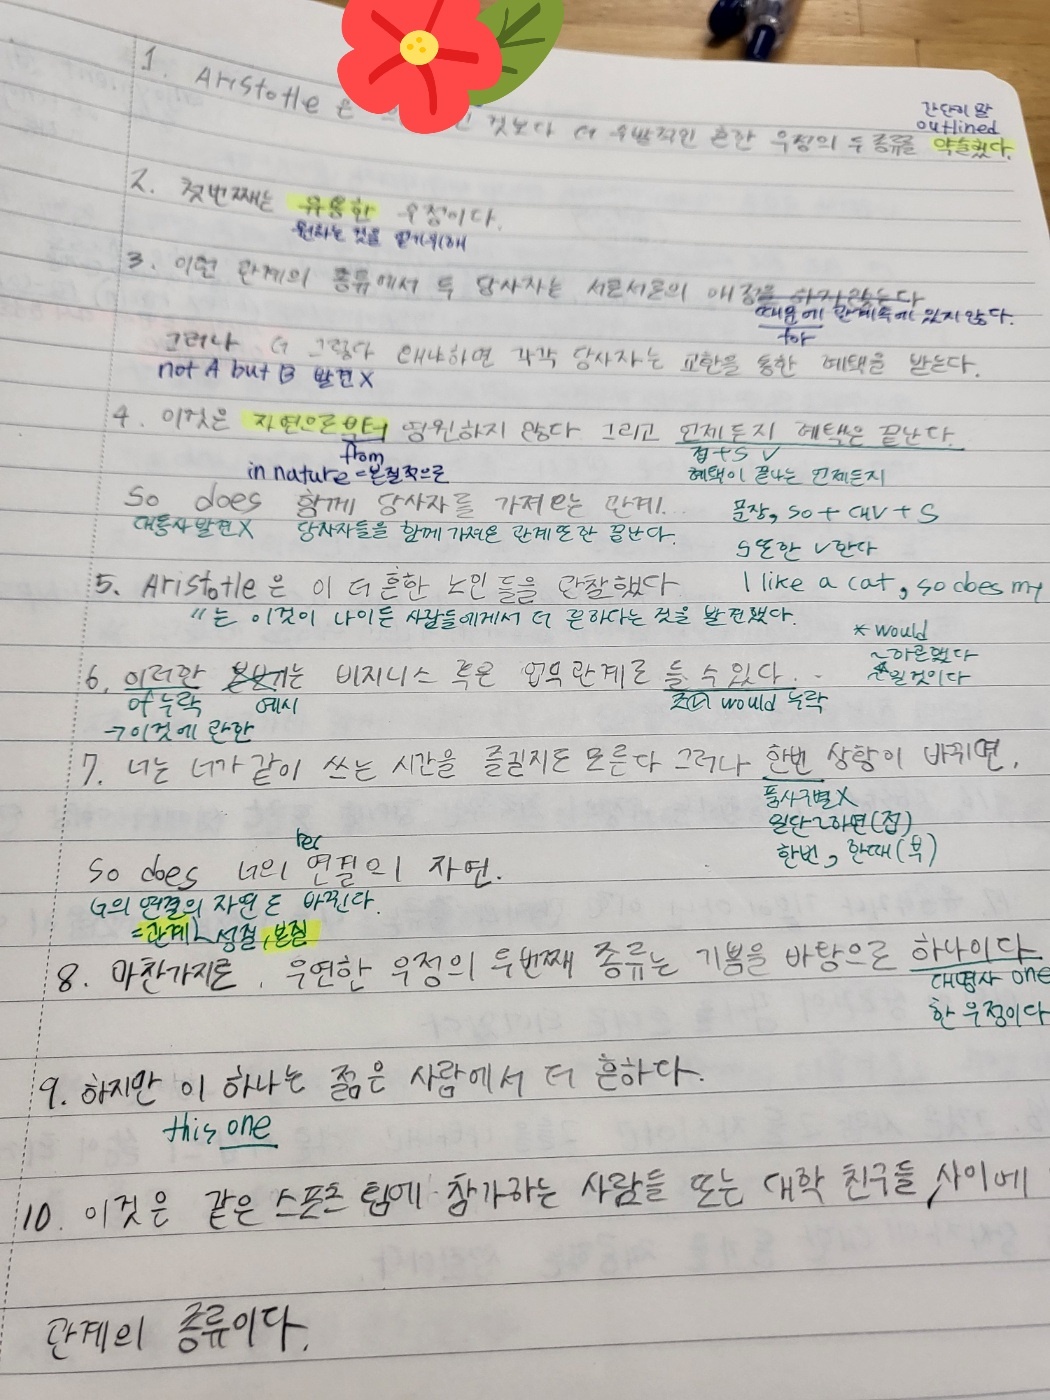 간단히 말
outlined
1. Aristotle 은 것보다 더 우발적인 흔한 우정의 두 종류를 약술했다.
2. 첫번째는 유용한 우정이다.
원하는 것을 얻기위해
3. 이런 관계의 종류에서 두 당사자는 서로서로의 애정을 하지 않는다
때문에 관계속에 있지 않다.
for
그러나 더 그렇다 왜냐하면 각각 당사자는 교환을 통한 혜택을 받는다.
not A but B 발견X
4. 이것은 자연으로부터 영원하지 않다 그리고 언제든지 혜택은 끝난다.
from
접+S V
in nature = 본질적으로
혜택이 끝나는 언제든지
So does 함께 당사자를 가져오는 관계.
문장, so + 대V + S
대동사 발견X 당사자들을 함께 가져온 관계또한 끝난다.
S또한 V한다
5. Aristotle은 이 더 흔한 노인들을 관찰했다
I like a cat, so does my
〃는 이것이 나이든 사람들에게서 더 흔하다는 것을 발견했다.
* would
~하곤했다
~일것이다
6. 이러한 는 비지니스 혹은 업무관계로 들 수 있다.
of 누락 예시
조V would 누락
→이것에 관한
7. 너는 너가 같이 쓰는 시간을 즐길지도 모른다 그러나 한번 상황이 바뀌면,
품사구별X
일단~하면(접)
한번, 한때(부)
So does 너의 연결의 자연.
너의 연결의 자연도 바뀐다.
=관계 성질, 본질
8. 마찬가지로, 우연한 우정의 두번째 종류는 기쁨을 바탕으로 하나이다
대명사 one
한 우정이다
9. 하지만 이 하나는 젊은 사람에서 더 흔하다.
this one
10. 이것은 같은 스포츠 팀에 참가하는 사람들 또는 대학 친구들 사이에
관계의 종류이다.